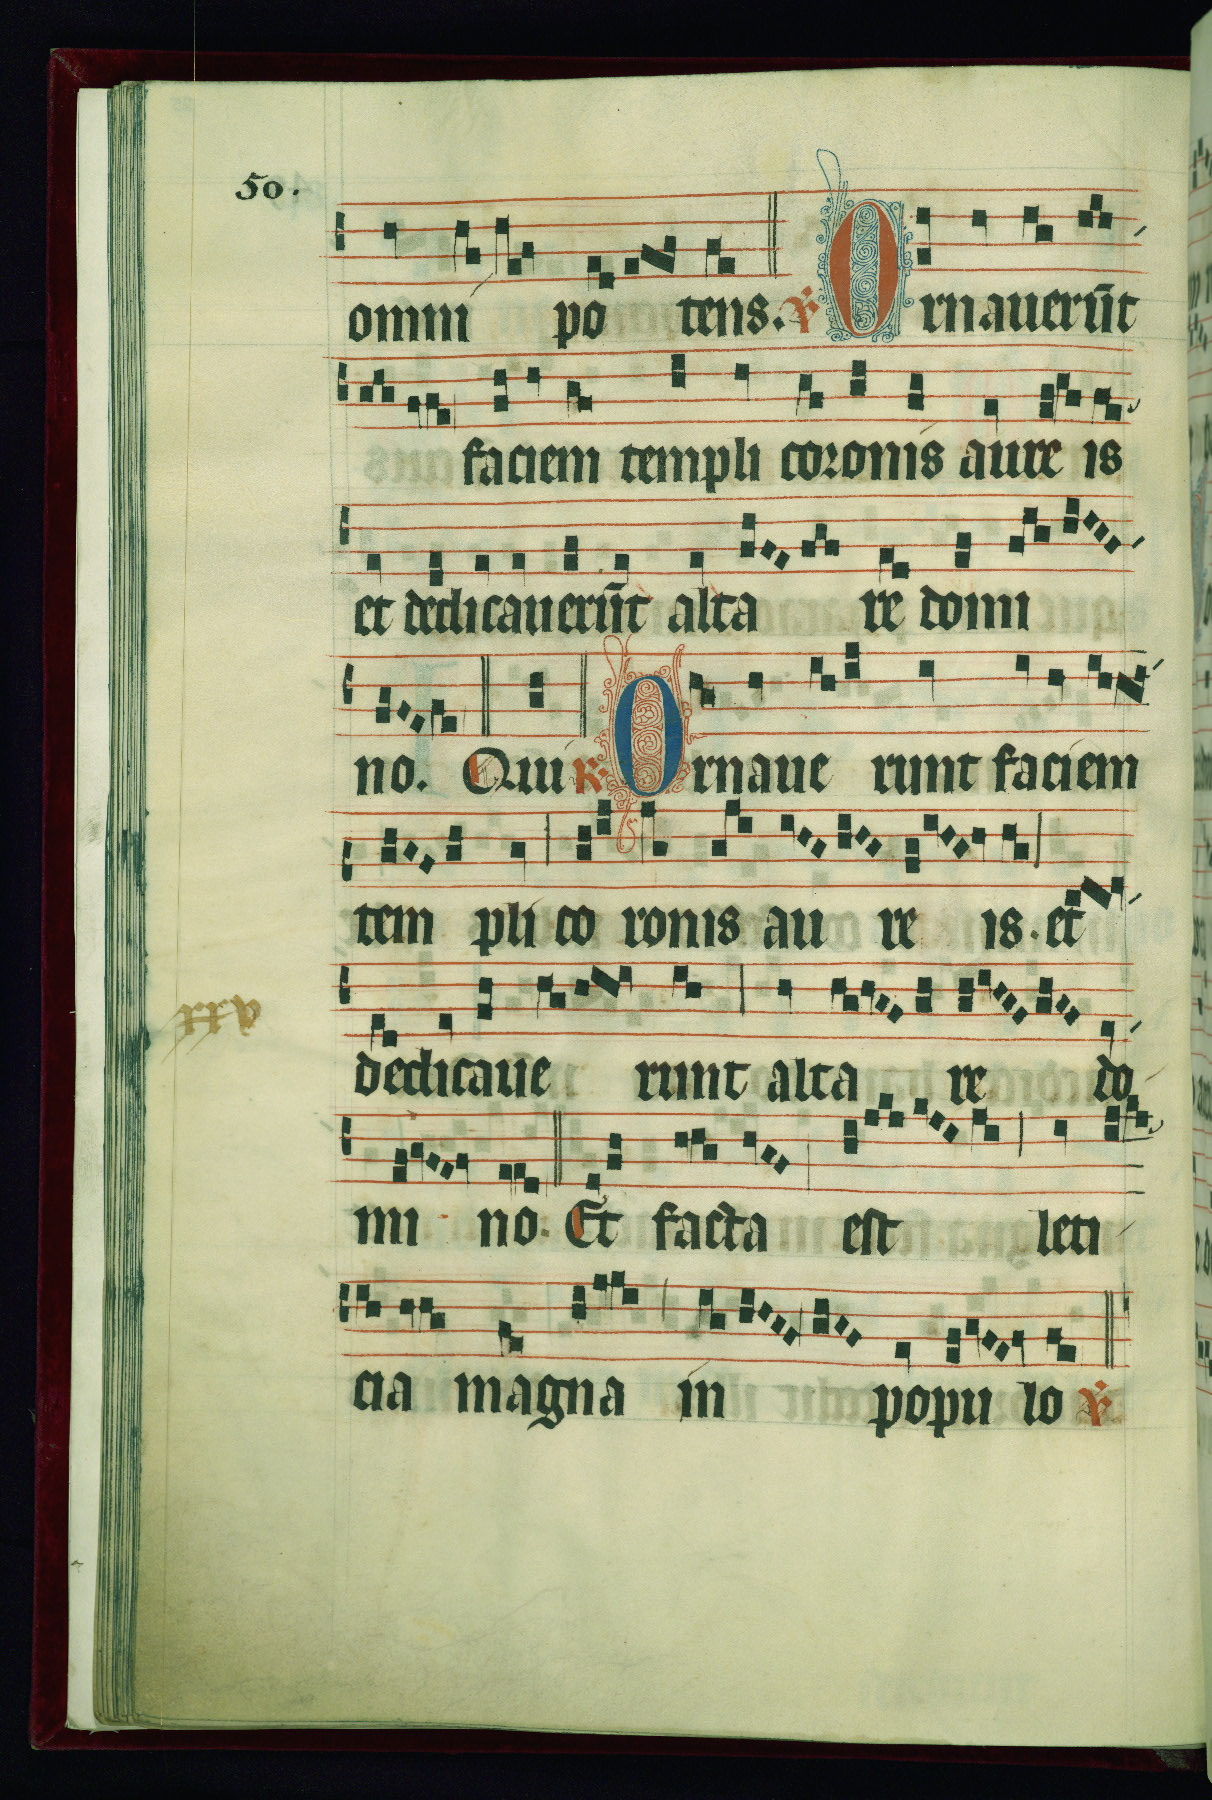 50.
omni po tens. ℣ Ornauerūt
faciem templi coronis aure is
et dedicauerūt alta re domi
no. Qui ℟. Ornaue runt faciem
tem pli co ronis au re is. et
dedicaue runt alta re do
mi no. Et facta est leti
cia magna in popu lo ℣